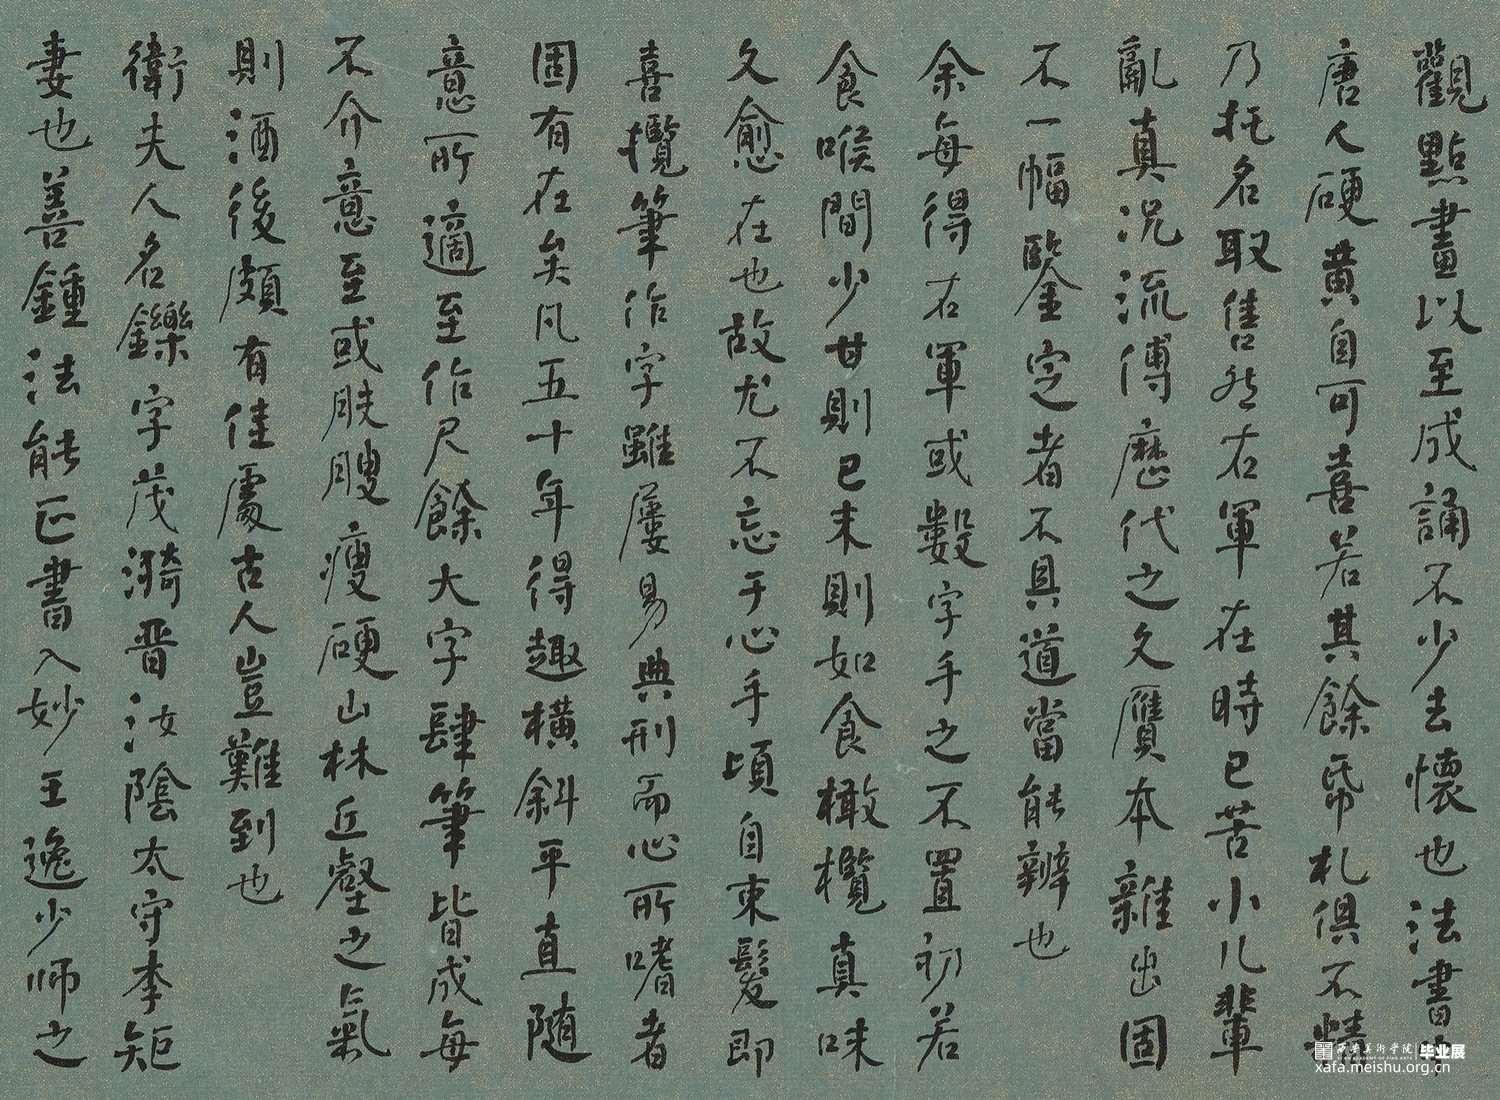 觀點畫以至成誦不少去懷也法書中
唐人硬黃自可喜若其餘帋札俱不精
乃托名取售然右軍在時已苦小儿輩
亂真況流傅歷代之久贋本雜出固
不一幅鑒定者不具道當能辨也
余每得右軍或數字手之不置初若
食喉間少甘則已末則如食橄欖真味
久愈在也故尤不忘于心手頃自束髮即
喜攬筆作字雖屢易典刑而心所嗜者
固有在矣凡五十年得趣橫斜平直隨
意所適至作尺餘大字肆筆皆成每
不介意至或膚腴瘦硬山林丘壑之氣
則酒後頗有佳處古人豈難到也
衛夫人名鑠字茂漪晉汝陰太守李矩
妻也善鍾法能正書入妙王逸少師之
西安美术学院 毕业展
xafa.meishu.org.cn